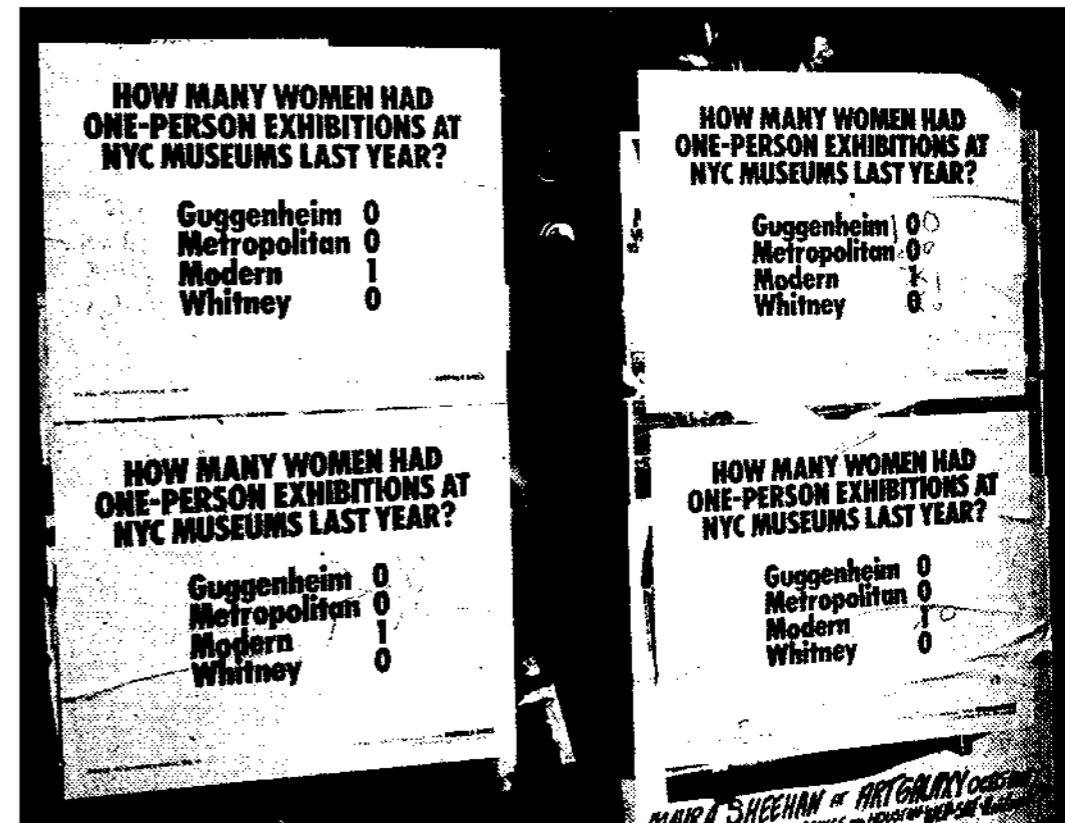 HOW MANY WOMEN HAD
ONE-PERSON EXHIBITIONS AT
NYC MUSEUMS LAST YEAR?
Guggenheim 0
Metropolitan 0
Modern 1
Whitney 0
HOW MANY WOMEN HAD
ONE-PERSON EXHIBITIONS AT
NYC MUSEUMS LAST YEAR?
Guggenheim 0
Metropolitan 0
Modern 1
Whitney 0
HOW MANY WOMEN HAD
ONE-PERSON EXHIBITIONS AT
NYC MUSEUMS LAST YEAR?
Guggenheim 0
Metropolitan 0
Modern 1
Whitney 0
HOW MANY WOMEN HAD
ONE-PERSON EXHIBITIONS AT
NYC MUSEUMS LAST YEAR?
Guggenheim 0
Metropolitan 0
Modern 1
Whitney 0
MAIRA SHEEHAN AT ART GALAXY